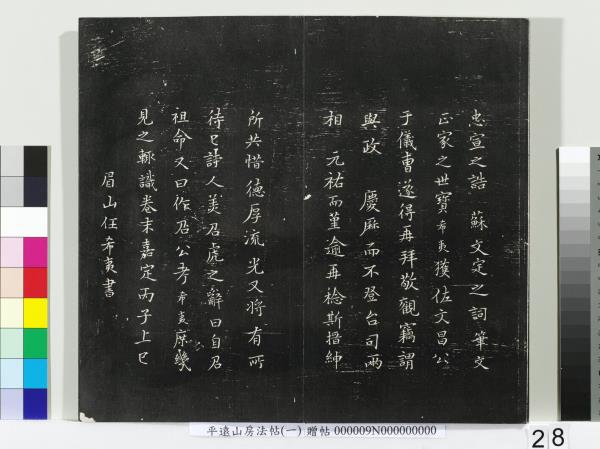 忠宣之誥 蘇文定之詞筆文
正家之世寶希夷獲佐文昌公
于儀曹遂得再拜敬觀竊謂
與政 慶厤而不登台司兩
相 元祐而堇逾再稔斯搢紳
所共惜德厚流光又將有所
待已詩人美召虎之辭曰自召
祖命又曰作召公考希夷庶幾
見之輒識卷末嘉定丙子上巳
眉山任希夷書
平遠山房法帖(一) 贈帖 000009N000000000
28